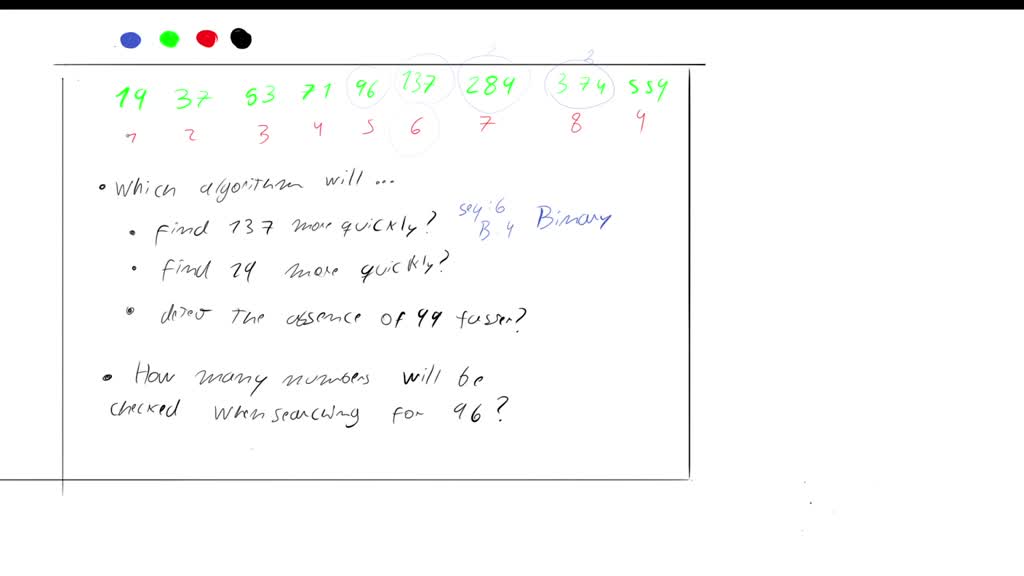 19 37 53 71 96 137 289 374 559
1 2 3 4 5 6 7 8 9
• Which algorithm will ...
• find 137 more quickly? seq: 6 B: 4 Binary
• find 19 more quickly?
• detect the absence of 99 faster?
• How many numbers will be
checked when searching for 96?